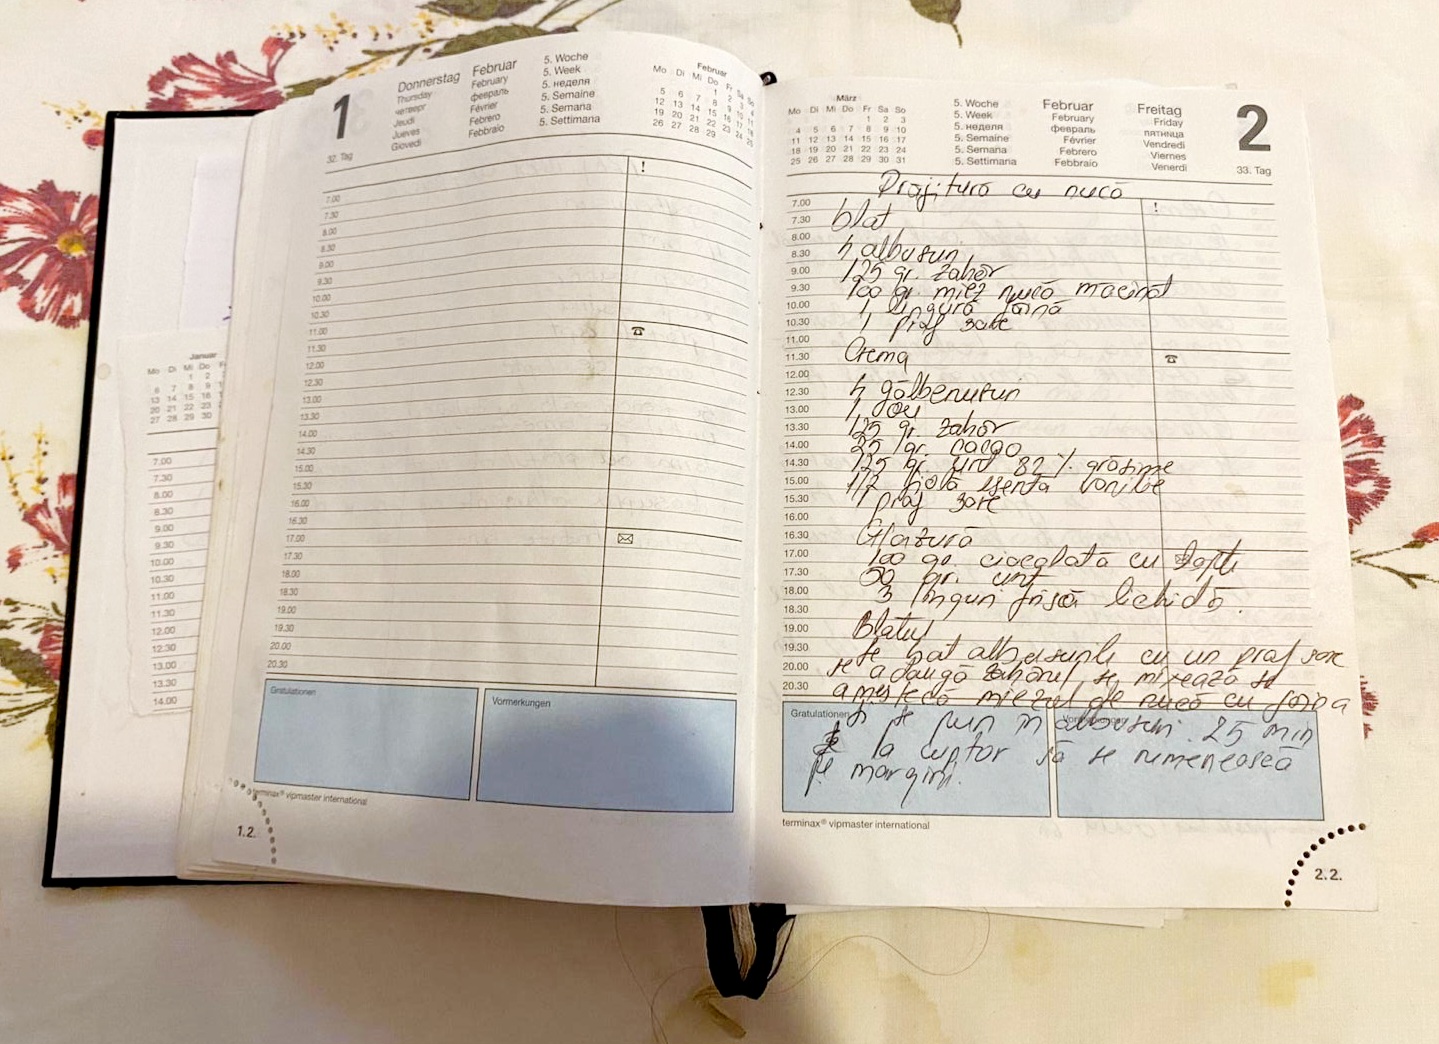 1
Donnerstag
Thursday
четверг
Jeudi
Jueves
Giovedi
Februar
February
февраль
Février
Febrero
Febbraio
5. Woche
5. Week
5. неделя
5. Semaine
5. Semana
5. Settimana
32. Tag
Februar
Mo Di Mi Do Fr Sa So
1 2 3 4
5 6 7 8 9 10 11
12 13 14 15 16 17 18
19 20 21 22 23 24 25
26 27 28 29
!
7.00
7.30
8.00
8.30
9.00
9.30
10.00
10.30
11.00
11.30
12.00
12.30
13.00
13.30
14.00
14.30
15.00
15.30
16.00
16.30
17.00
17.30
18.00
18.30
19.00
19.30
20.00
20.30
Gratulationen
Vormerkungen
terminax® vipmaster international
1.2.
Januar
Mo Di Mi Do F
1 2
6 7 8 9
13 14 15 16
20 21 22 23
27 28 29 30
7.00
7.30
8.00
8.30
9.00
9.30
10.00
10.30
11.00
11.30
12.00
12.30
13.00
13.30
14.00
März
Mo Di Mi Do Fr Sa So
1 2 3
4 5 6 7 8 9 10
11 12 13 14 15 16 17
18 19 20 21 22 23 24
25 26 27 28 29 30 31
5. Woche
5. Week
5. неделя
5. Semaine
5. Semana
5. Settimana
Februar
February
февраль
Février
Febrero
Febbraio
Freitag
Friday
пятница
Vendredi
Viernes
Venerdi
2
33. Tag
!
7.00
7.30
8.00
8.30
9.00
9.30
10.00
10.30
11.00
11.30
12.00
12.30
13.00
13.30
14.00
14.30
15.00
15.30
16.00
16.30
17.00
17.30
18.00
18.30
19.00
19.30
20.00
20.30
Prăjitură cu nucă
blat
4 albusuri
125 gr. zahăr
100 gr. miez nucă măcinat
1 lingură făină
1 praf sare
Crema
4 gălbenusuri
1 ou
125 gr. zahăr
25 gr. cacao
125 gr. unt 82 % grăsime
1/2 fiolă esență vanilie
1 praf sare
Glazură
100 gr. ciocolată cu lapte
50 gr. unt
3 linguri frișcă lichidă.
Blatul
se bat albusurile cu un praf sare
se adaugă zahărul, se mixează se
amestecă miezul de nucă cu făina
și se pun în albusuri. 25 min
la cuptor să se rumenească
pe margini.
Gratulationen
Vormerkungen
terminax® vipmaster international
2.2.